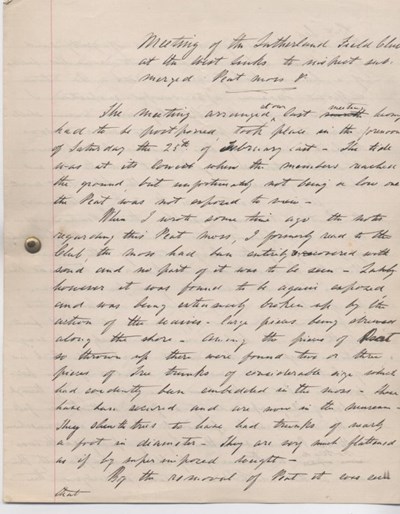 Meeting of the Sutherland Field Club
at the west links to inspect sub-
merged Peat moss &
The meeting arranged at our last month meeting having
had to be postponed, took place in the forenoon
of Saturday the 25th of February last - The tide
was at its lowest when the members reached
the ground but unfortunately not being a low one
the Peat was not exposed to view -
When I wrote some time ago the note
regarding this Peat moss, I formerly read to the
Club, the moss had been entirely covered with
sand and no part of it was to be seen - Lately
however it was found to be again exposed
and was being extensively broken up by the
action of the waves - large pieces being strewed
along the shore - among the pieces of Peat
so thrown up there were found two or three
pieces of tree trunks of considerable size which
had evidently been embedded in the moss - these
have been secured and are now in the museum -
They to have had trunks of nearly
a foot in diameter - They are very much flattened
as if by super imposed weight -
By the removal of Peat it was
that